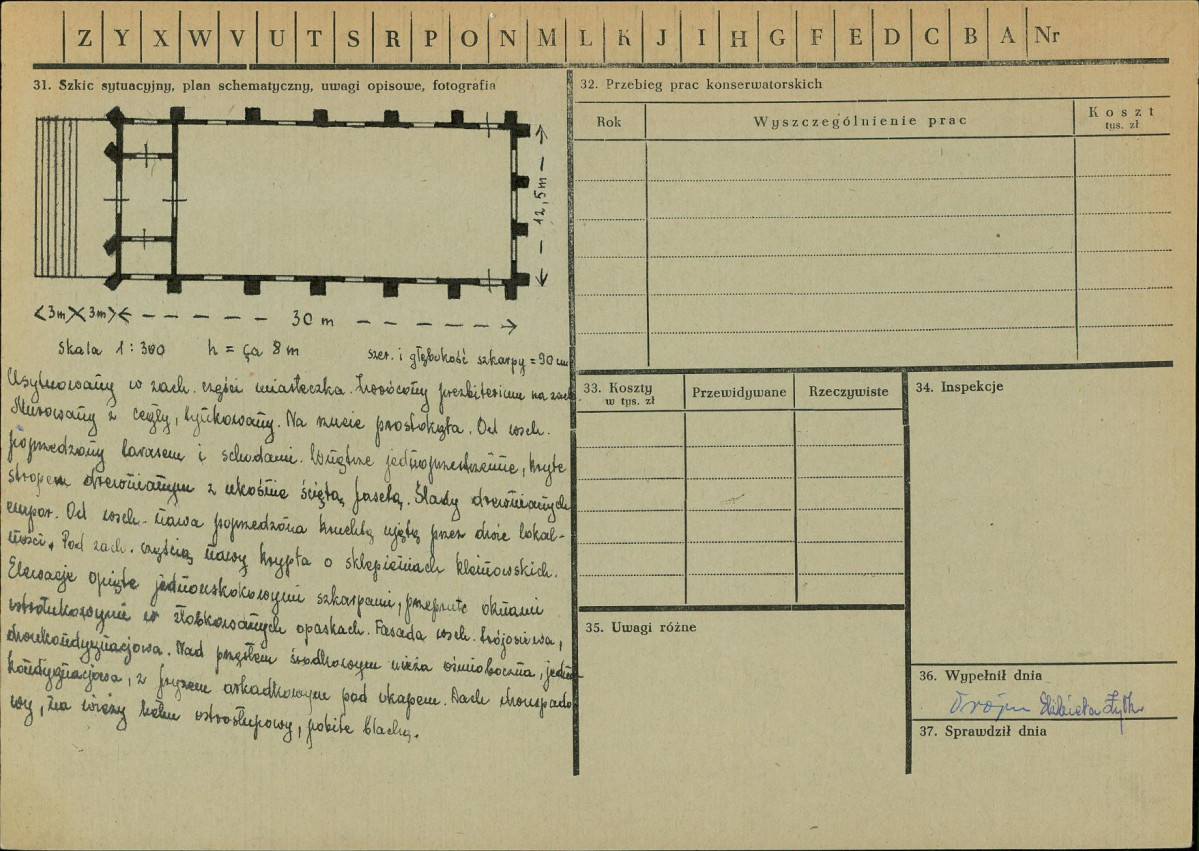 Z Y X W V U T S R P O N M L K J I H G F E D C B A Nr
31. Szkic sytuacyjny, plan schematyczny, uwagi opisowe, fotografia
12,5m
3m 3m 30 m
Skala 1:300 h = ca 8 m szer. i głębokość szkarpy = 90 cm
Usytuowany w zach. części miasteczka. Zwrócony prezbiterium na zach
Murowany z cegły, tynkowany. Na rzucie prostokąta. Od wsch.
poprzedzony tarasem i schodami. Wnętrze jednoprzestrzenne, kryte
stropem drewnianym z ukośnie ściętą fasetą. Ślady drewnianych
empor. Od wsch. nawa poprzedzona kruchtą ujętą przez dwie lokal-
ności. Pod zach. częścią nawy krypta o sklepieniach kleinowskich.
Elewacje opięte jednouskokowymi szkarpami, przeprute oknami
ostrołukowymi w żłobkowanych opaskach. Fasada wsch. trójosiowa,
dwukondygnacjowa. Nad przęsłem środkowym wieża ośmioboczna, jedno-
kondygnacjowa, z fryzem arkadkowym pod okapem. Dach dwuspado
wy, na wieży hełm ostrosłupowy, pobite blachą.
32. Przebieg prac konserwatorskich
Rok Wyszczególnienie prac Koszt
tys. zł
33. Koszty
w tys. zł Przewidywane Rzeczywiste
34. Inspekcje
35. Uwagi różne
36. Wypełnił dnia
Elżbieta
37. Sprawdził dnia